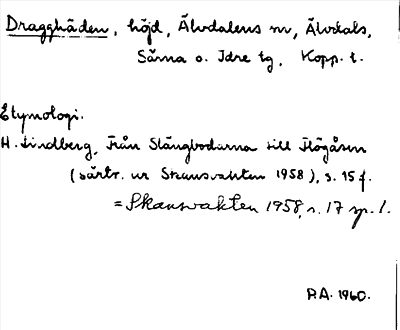 Draggbäden, höjd, Älvdalens sn, Älvdals,
Särna o. Idre tg, Kopp. l.
Etymologi.
H. Lindberg, Från Slängbodarna till Högåsen
(särtr. ur Skansvakten 1958), s. 15 f.
= Skansvakten 1958, s. 17 sp. 1.
P.A. 1960.